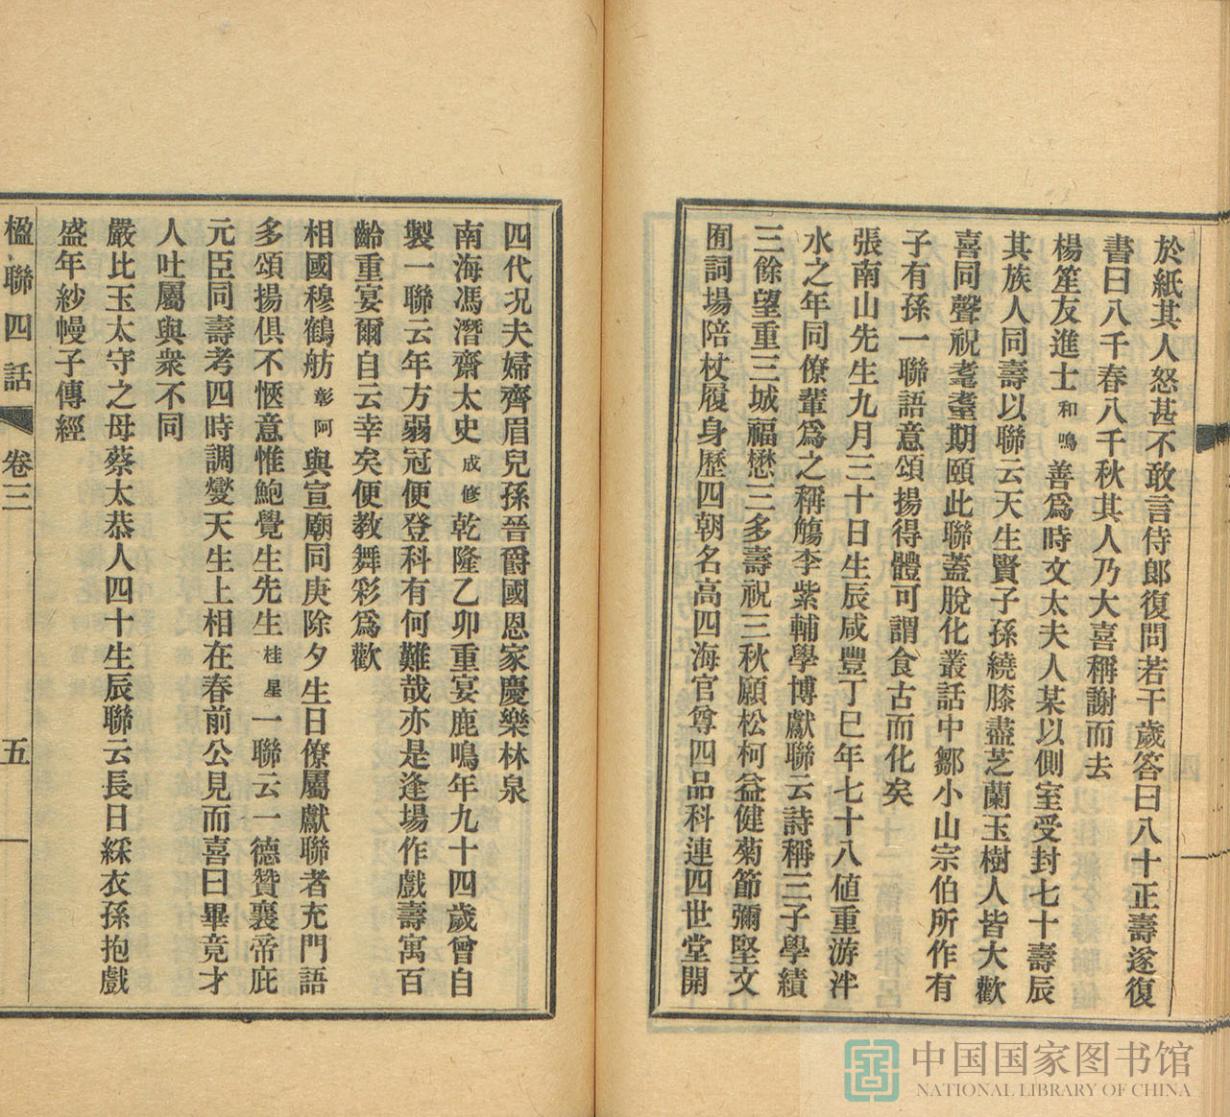 於紙其人怒甚不敢言侍郎復問若干歲答曰八十正壽遂復
書曰八千春八千秋其人乃大喜稱謝而去
楊笙友進士和鳴善爲時文太夫人某以側室受封七十壽辰
其族人同壽以聯云天生賢子孫繞膝盡芝蘭玉樹人皆大歡
喜同聲祝耄耋期頤此聯蓋脫化叢話中鄒小山宗伯所作有
子有孫一聯語意頌揚得體可謂食古而化矣
張南山先生九月三十日生辰咸豐丁巳年七十八値重游泮
水之年同僚輩爲之稱觴李紫輔學博獻聯云詩稱三子學績
三餘望重三城福懋三多壽祝三秋願松柯益健菊節彌堅文
囿詞場陪杖履身歷四朝名高四海官尊四品科連四世堂開
四代況夫婦齊眉兒孫晉爵國恩家慶樂林泉
南海馮潛齋太史成修乾隆乙卯重宴鹿鳴年九十四歲曾自
製一聯云年方弱冠便登科有何難哉亦是逢場作戲壽寓百
齡重宴爾自云幸矣便教舞彩爲歡
相國穆鶴舫彰阿與宣廟同庚除夕生日僚屬獻聯者充門語
多頌揚俱不愜意惟鮑覺生先生桂星一聯云一德贊襄帝庇
元臣同壽考四時調燮天生上相在春前公見而喜曰畢竟才
人吐屬與衆不同
嚴比玉太守之母蔡太恭人四十生辰聯云長日綵衣孫抱戲
盛年紗幔子傳經
楹聯四話
卷三
五
中国国家图书馆
NATIONAL LIBRARY OF CHINA